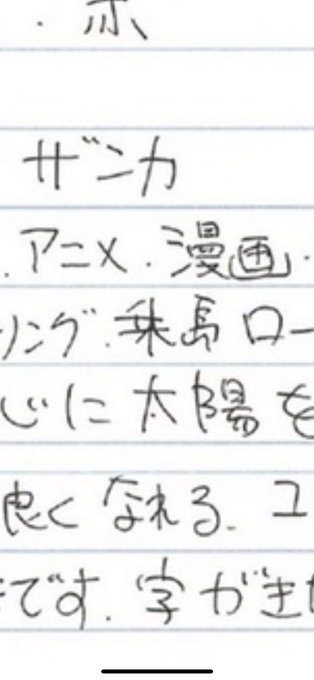 ・赤
ザンカ
.アニメ.漫画.
リング.乗島ロー
じに太陽を
良くなれる.ユ
です.字がき